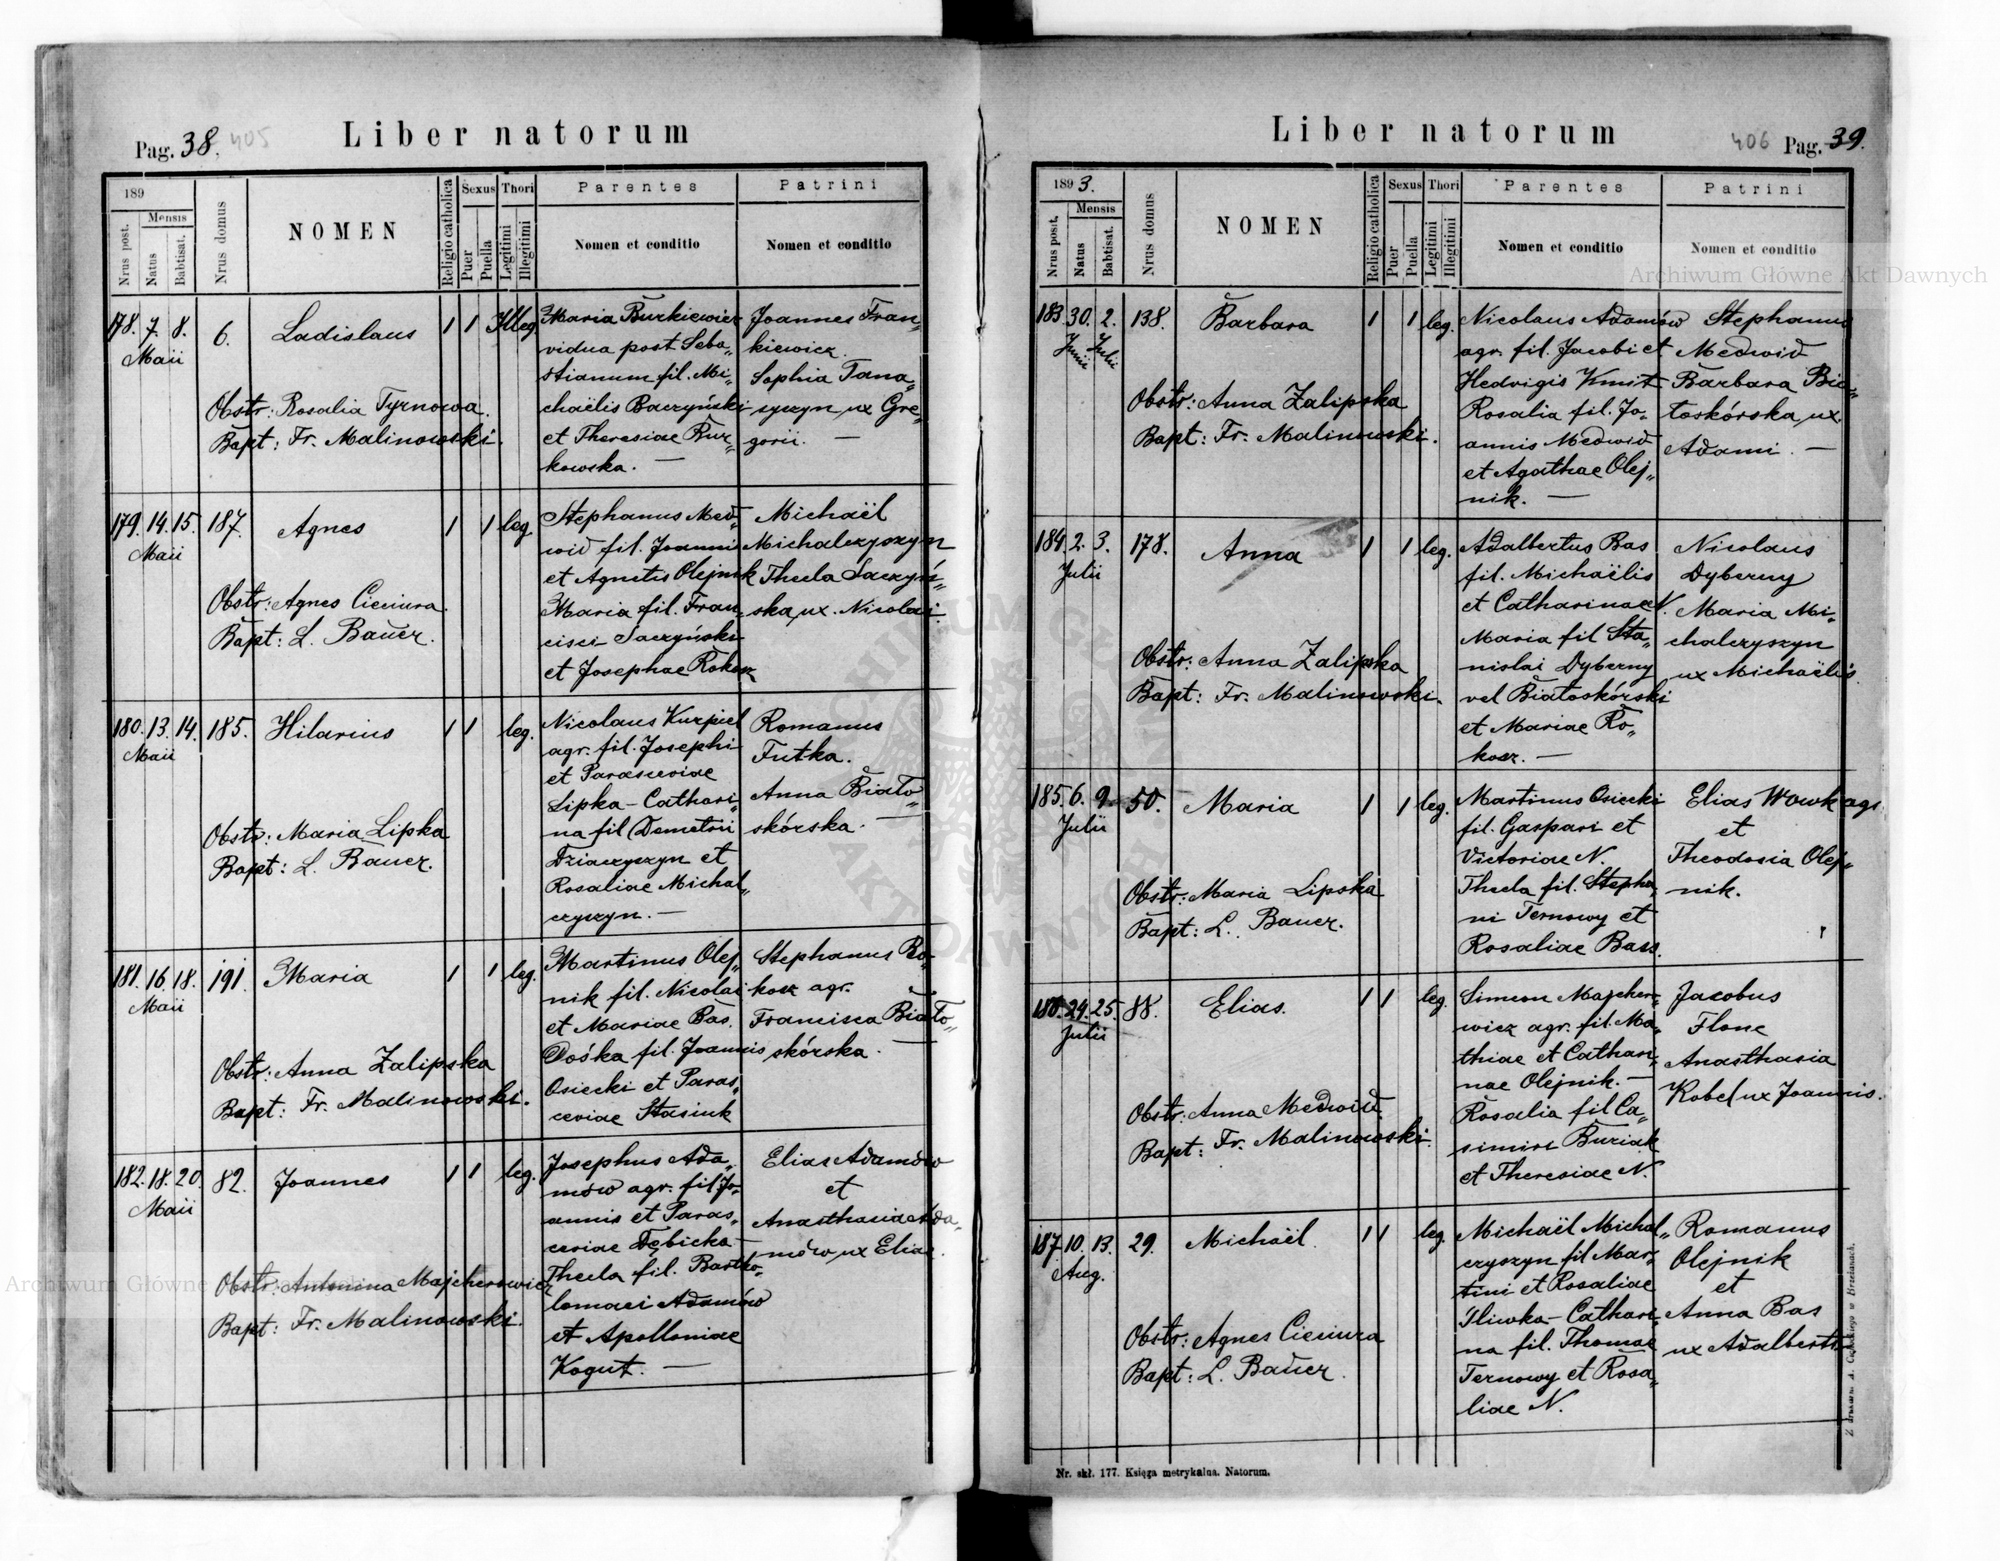 Pag. 38. 405
Liber natorum
189
Mensis
Nrus post.
Natus
Babtisat.
Nrus domus
NOMEN
Religio catholica
Sexus
Puer
Puella
Thori
Legitimi
Illegitimi
Parentes
Nomen et conditio
Patrini
Nomen et conditio
178. 7. 8. 6. Ladislaus 1 1 Illeg.
Maii
Obstr: Rosalia Tyrnowa.
Bapt: Fr. Malinowski.
Maria Burkiewicz
vidua post Seba„
stianum fil. Mi„
chaëlis Baczyński
et Theresiae Bur„
kowska. —
Joannes Fran„
kiewicz.
Sophia Tana„
syczyn, ux Gre„
gorii. —
179. 14. 15. 187. Agnes 1 1 leg.
Maii
Obstr: Agnes Cieciura.
Bapt: L. Bauer.
Stephanus Med„
wid fil. Joannis
et Agnetis Olejnik
Maria fil. Fran„
cisci Saczyński
et Josephae Rokosz
Michaël
Michalczyszyn
Thecla Saczyń„
ska, ux. Nicolai.
180. 13. 14. 185. Hilarius 1 1 leg.
Maii
Obstr: Maria Lipka
Bapt: L. Bauer.
Nicolaus Kurpiel
agr. fil. Josephi
et Parasceviae
Lipka – Cathari„
na fil Demetrii
Dziaczyszyn et
Rosaliae Michal„
czyszyn. —
Romanus
Futka.
Anna Biało„
skórska. —
181. 16. 18. 191. Maria 1 1 leg.
Maii
Obstr: Anna Zalipska
Bapt: Fr. Malinowski.
Martinus Olej„
nik fil. Nicolai
et Mariae Bas.
Dośka fil. Joannis
Osiecki et Paras„
ceviae Stasiuk
Stephanus Ro„
kosz agr.
Francisca Biało„
skórska. —
182. 18. 20. 82. Joannes 1 1 leg.
Maii
Obstr: Antonina Majcherowicz
Bapt: Fr. Malinowski.
Josephus Ada„
mów agr. fil. Jo„
annis et Paras„
ceviae Dębicka —
Thecla fil. Bartho„
lomaei Adamów
et Apolloniae
Kogut. —
Elias Adamów
et
Anasthasia Ada„
mów, ux Eliae.
Liber natorum
406 Pag. 39.
1893.
Mensis
Nrus post.
Natus
Babtisat.
Nrus domus
NOMEN
Religio catholica
Sexus
Puer
Puella
Thori
Legitimi
Illegitimi
Parentes
Nomen et conditio
Patrini
Nomen et conditio
183. 30. 2. 138. Barbara 1 1 leg.
Junii Julii
Obstr: Anna Zalipska
Bapt: Fr. Malinowski.
Nicolaus Adamów
agr. fil. Jacobi et
Hedvigis Kmit
Rosalia fil. Jo„
annis Medwid
et Agathae Olej„
nik. —
Stephanus
Medwid
Barbara Bia„
łoskórska, ux.
Adami. —
184. 2. 3. 178. Anna 1 1 leg.
Julii
Obstr: Anna Zalipska
Bapt: Fr. Malinowski.
Adalbertus Bas
fil. Michaëlis
et Catharinae N.
Maria fil Sta„
nislai Dyberny
vel Białoskórski
et Mariae Ro„
kosz. —
Nicolaus
Dyberny
Maria Mi„
chalczyszyn
ux Michaëlis.
185. 6. 9. 50. Maria 1 1 leg.
Julii
Obstr: Maria Lipska
Bapt: L. Bauer.
Martinus Osiecki
fil. Gaspari et
Victoriae N.
Thecla fil. Stepha„
ni Ternowy et
Rosaliae Bass.
Elias Wowk agr.
et
Theodosia Olej„
nik.
186. 24. 25. 88. Elias. 1 1 leg.
Julii
Obstr: Anna Medwid.
Bapt: Fr. Malinowski.
Simeon Majchero„
wicz agr. fil. Ma„
thiae et Cathari„
nae Olejnik. —
Rosalia fil Ca„
simiri Buriak
et Theresiae N.
Jacobus
Flonc
Anasthasia
Kobel ux Joannis.
187. 10. 13. 29. Michaël. 1 1 leg.
Aug.
Obstr: Agnes Cieciura
Bapt: L. Bauer.
Michaël Michal„
czyszyn fil Mar„
tini et Rosaliae
Śliwka – Cathari„
na fil. Thomae
Ternowy et Rosa„
liae N.
Romanus
Olejnik
et
Anna Bas
ux Adalberti.
Nr. skł. 177. Księga metrykalna. Natorum.
Archiwum Główne Akt Dawnych